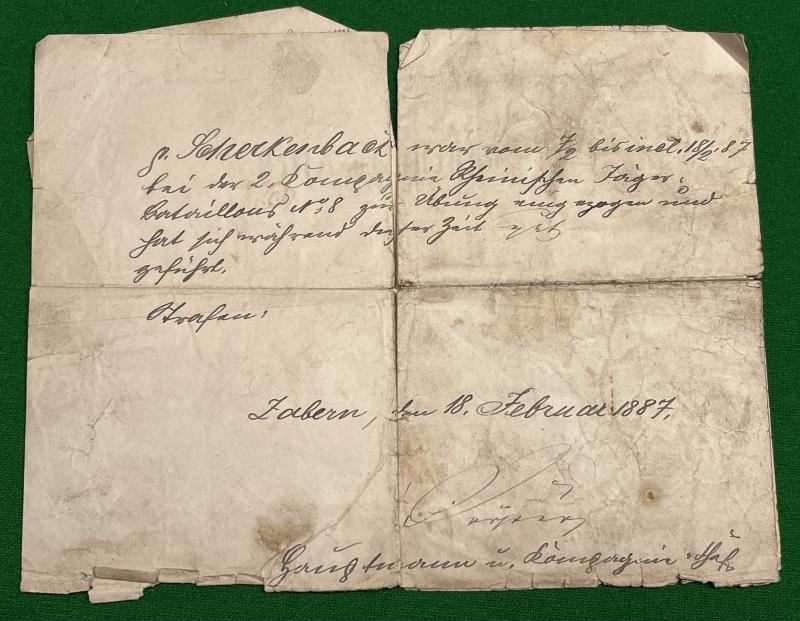 p. Scherkenbach war vom 7/2 bis incl. 18/2. 87
bei der 2. Kompagnie Rheinischen Jäger-
Bataillons No. 8 zur Übung eingezogen und
hat sich während dieser Zeit gut
geführt.
Strafen:
Zabern, den 18. Februar 1887.
Hauptmann u. Kompagnie-Chef